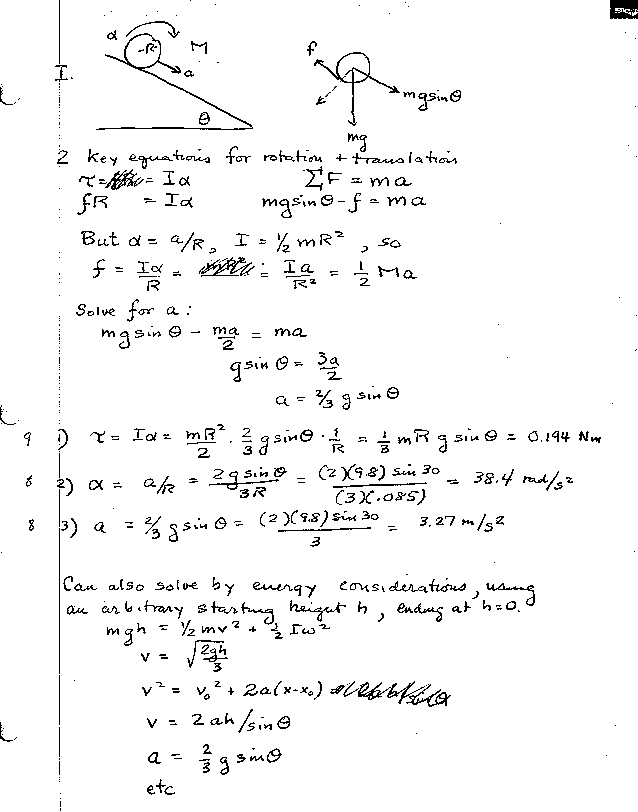 α R M
a
I.
θ
f
mg sin θ
mg
2 key equations for rotation + translation
τ = = Iα ΣF = ma
fR = Iα mg sin θ - f = ma
But α = a/R, I = ½ mR², so
f = Iα/R = = Ia/R² = 1/2 Ma
Solve for a:
mg sin θ - ma/2 = ma
g sin θ = 3a/2
a = 2/3 g sin θ
9 1) τ = Iα = mR²/2 · 2/3 g sin θ · 1/R = 1/3 mR g sin θ = 0.194 Nm
8 2) α = a/R = 2g sin θ/3R = (2)(9.8) sin 30/(3)(.085) = 38.4 rad/s²
8 3) a = 2/3 g sin θ = (2)(9.8) sin 30/3 = 3.27 m/s²
Can also solve by energy considerations, using
an arbitrary starting height h, ending at h=0.
mgh = ½ mv² + ½ Iω²
v = √(2gh/3)
v² = v₀² + 2a(x-x₀)
v = 2ah/sin θ
a = 2/3 g sin θ
etc